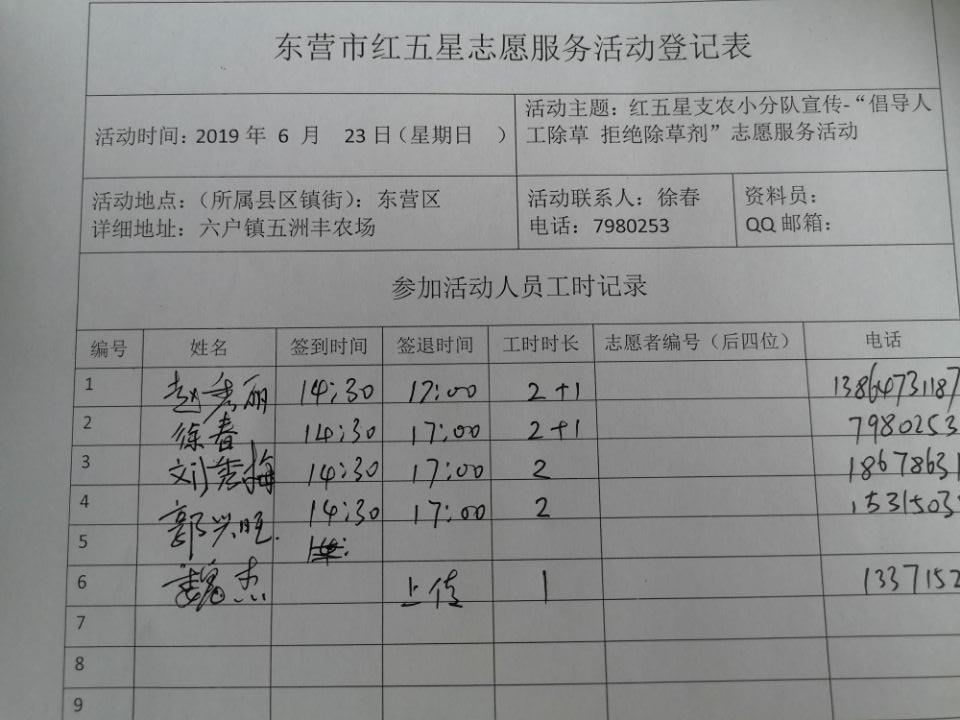 东营市红五星志愿服务活动登记表
活动时间：2019 年 6 月 23 日（星期日 ）
活动主题：红五星支农小分队宣传-“倡导人
工除草 拒绝除草剂”志愿服务活动
活动地点：（所属县区镇街）：东营区
详细地址：六户镇五洲丰农场
活动联系人：徐春
电话：7980253
资料员：
QQ 邮箱：
参加活动人员工时记录
编号 姓名 签到时间 签退时间 工时时长 志愿者编号（后四位） 电话
1 赵秀丽 14:30 17:00 2+1 13864731187
2 徐春 14:30 17:00 2+1 7980253
3 刘秀梅 14:30 17:00 2 18678631
4 郭兴旺 14:30 17:00 2 1531503
5
6 魏杰 上传 1 1337152
7
8
9